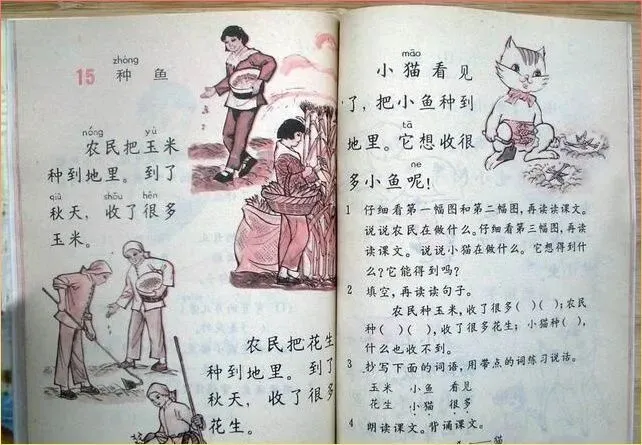 zhòng
15 种 鱼
nóng yù
农民把玉米
种到地里。到了
qiū shōu hěn
秋天，收了很多
玉米。
农民把花生
种到地里。到了
秋天，收了很多
花生。
māo
小猫看见
了，把小鱼种到
tā
地里。它想收很
ne
多小鱼呢！
1 仔细看第一幅图和第二幅图，再读读课文。
说说农民在做什么。仔细看第三幅图，再读
读课文。说说小猫在做什么。它想得到什
么？它能得到吗？
2 填空，再读读句子。
农民种玉米，收了很多( )( )；农民
种( )( )，收了很多花生；小猫种( )，
什么也收不到。
3 抄写下面的词语，用带点的词练习说话。
玉米 小鱼 看见
花生 小猫 很多
4 朗读课文。背诵课文。